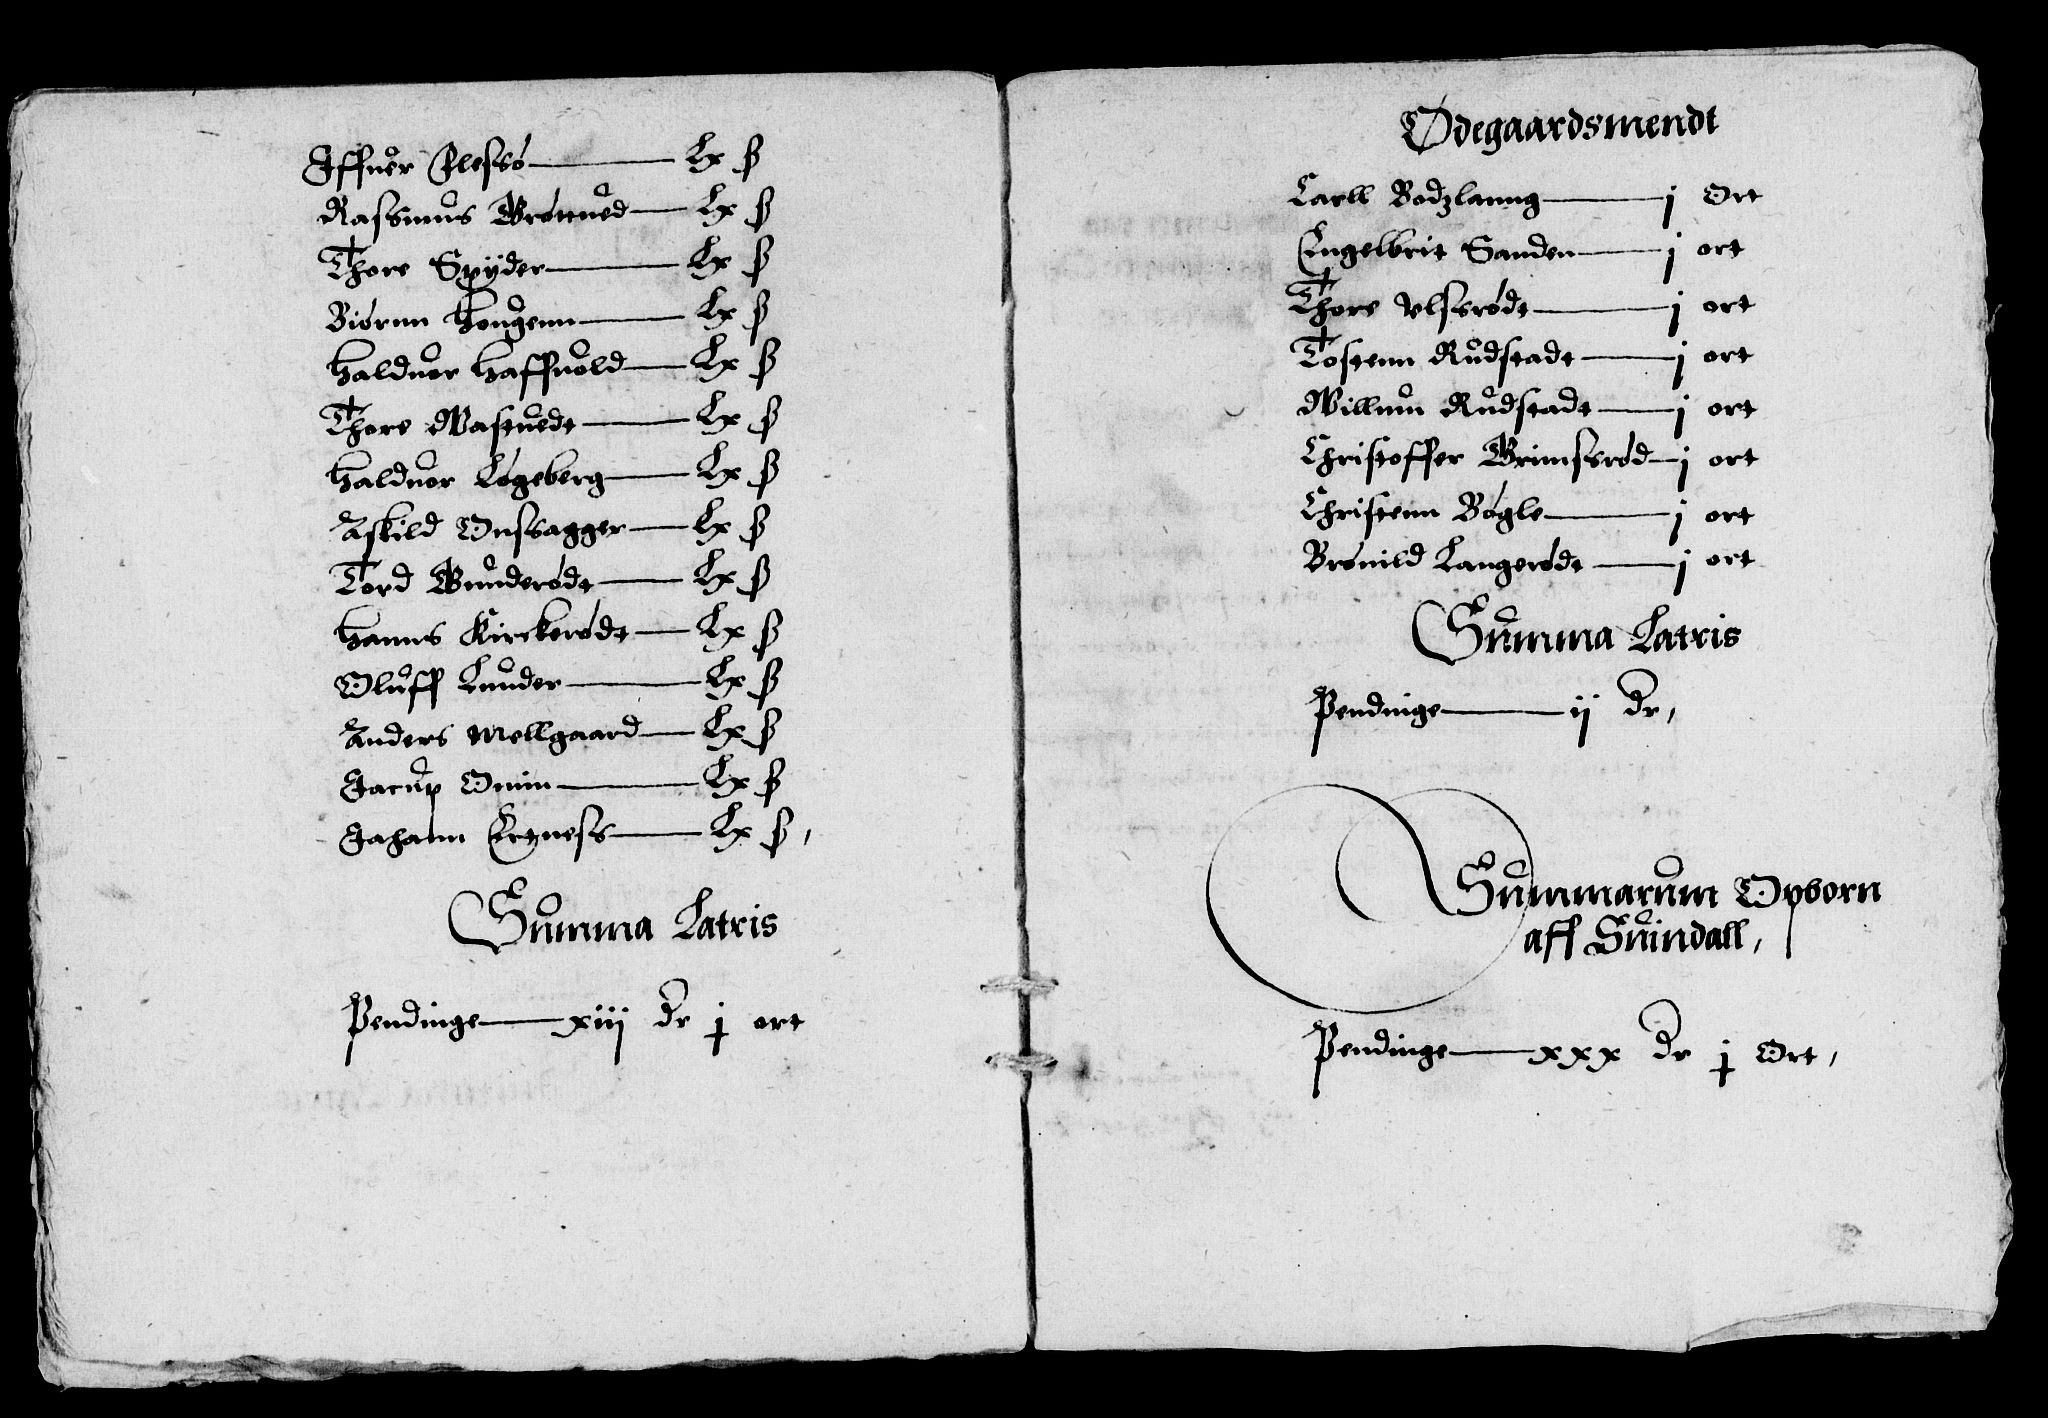 Iffuer Olessø Lx β
Rassmus Brønued Lx β
Thore Spÿder Lx β
Biørnn Hougenn Lx β
Halduor Haffuold Lx β
Thore Wastuedt Lx β
Halduor Løgeberg Lx β
Askild Onssagger Lx β
Tord Bunderødt Lx β
Hanns Kirckerødt Lx β
Oluff Lunder Lx β
Anders Mellgaard Lx β
Jacup Onim Lx β
Johann Ertness Lx β,
Summa Latris
Pendinge xiij dr j ort
Ødegaardsmendt
Carll Bodzlanng j Ort
Engelbrit Sanden j ort
Thore Vlssrødt j ort
Tostenn Rudstadt j ort
Willum Rudstadt j ort
Christoffer Brimssrød j ort
Christenn Bøgle j ort
Brønild Langerødt j ort
Summa Latris
Pendinge ij dr,
Summarum Opborn
aff Suindall,
Pendinge xxx dr j Ort,